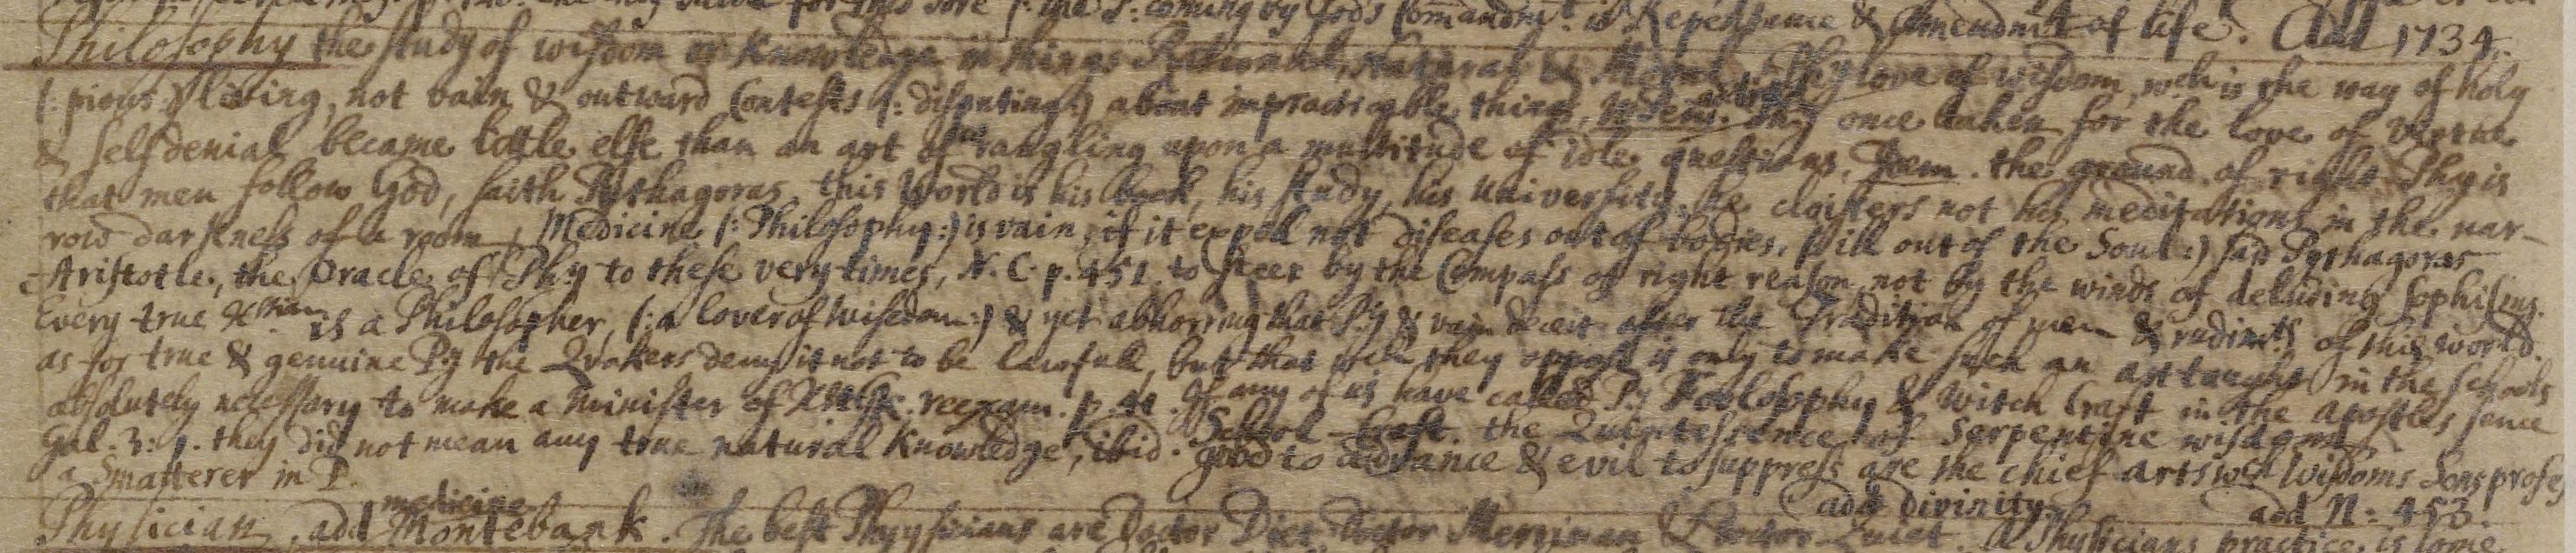 for this sore (: the P: coming by Gods Com̄andm.t is Repentance & Amendm.t of life. Add 1734.
Philosophy the study of wisdom or knowledge in things Rational, Natural & Moral. Phy love of wisdom, wch is the way of holy
(: pious :) living, not vain & outward Contests (: disputing :) about impracticable things, Phy once taken for the love of Vertue
& selfdenial became little else than an art of wrangling upon a multitude of idle questions, Item. the ground of right Phy is
that men follow God, saith Pythagoras, this World is his book, his study, his University, he cloisters not his meditations in the nar-
row darkness of a room, Medicine (: Philosophy :) is vain, if it expell not diseases out of bodies, (: ill out of the Soul :) said Pythagoras
Aristotle, the Oracle of Phy to these very times, N. C. p. 451. to steer by the Compass of right reason, not by the winds of deluding Sophisms.
Every true Xstian is a Philosopher, (: a lover of wisedom :) & yet abhorring that P:y & vain deceit after the Tradition of men & rudim.ts of this world.
as for true & genuine P:y the Quakers deny it not to be lawfull, but that wch they oppose is only to make such an art taught in the schools
absolutely necessary to make a Minister of X reexam. p. 41. If any of us have called P:y Foolosophy & Witch Craft in the apostles sence
Gal. 3: 1. they did not mean any true natural knowledge, ibid. School-Craft. the Quintessence of Serpentine wisdom,
a Smatterer in P. good to advance & evil to suppress are the chief arts wch Wisdoms Sons profess
add divinity add N: 453.
Physician, add medicine Montebank. The best Phyysicians are Doctor Diet Doctor Merriman & Doctor Quiet. A Physicians practice is some